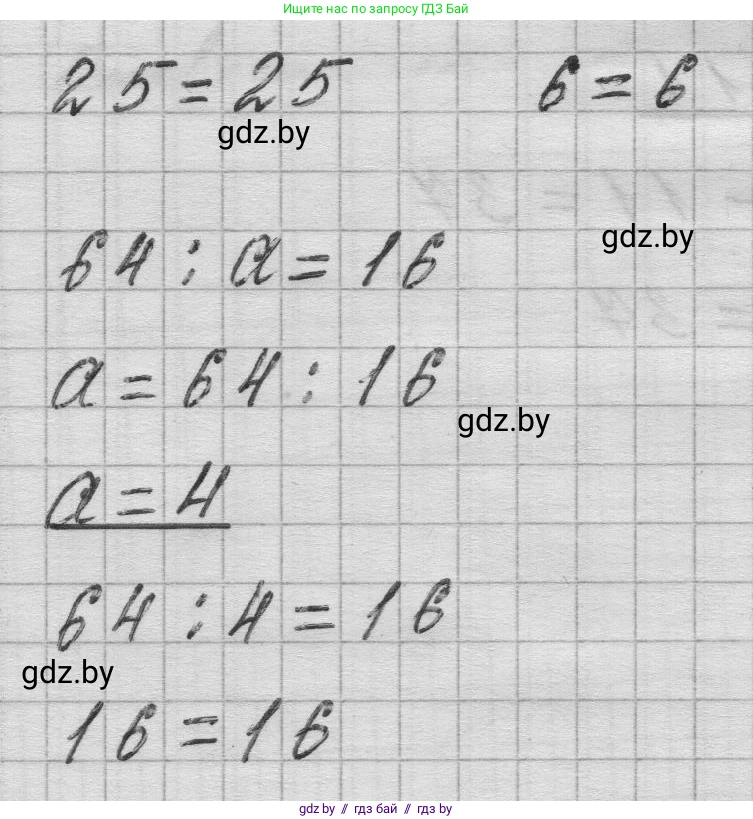 Ищите нас по запросу ГДЗ Бай
25 = 25 6 = 6
gdz.by
64 : a = 16
gdz.by
a = 64 : 16
gdz.by
a = 4
64 : 4 = 16
gdz.by
16 = 16
gdz.by // гдз бай // гдз by